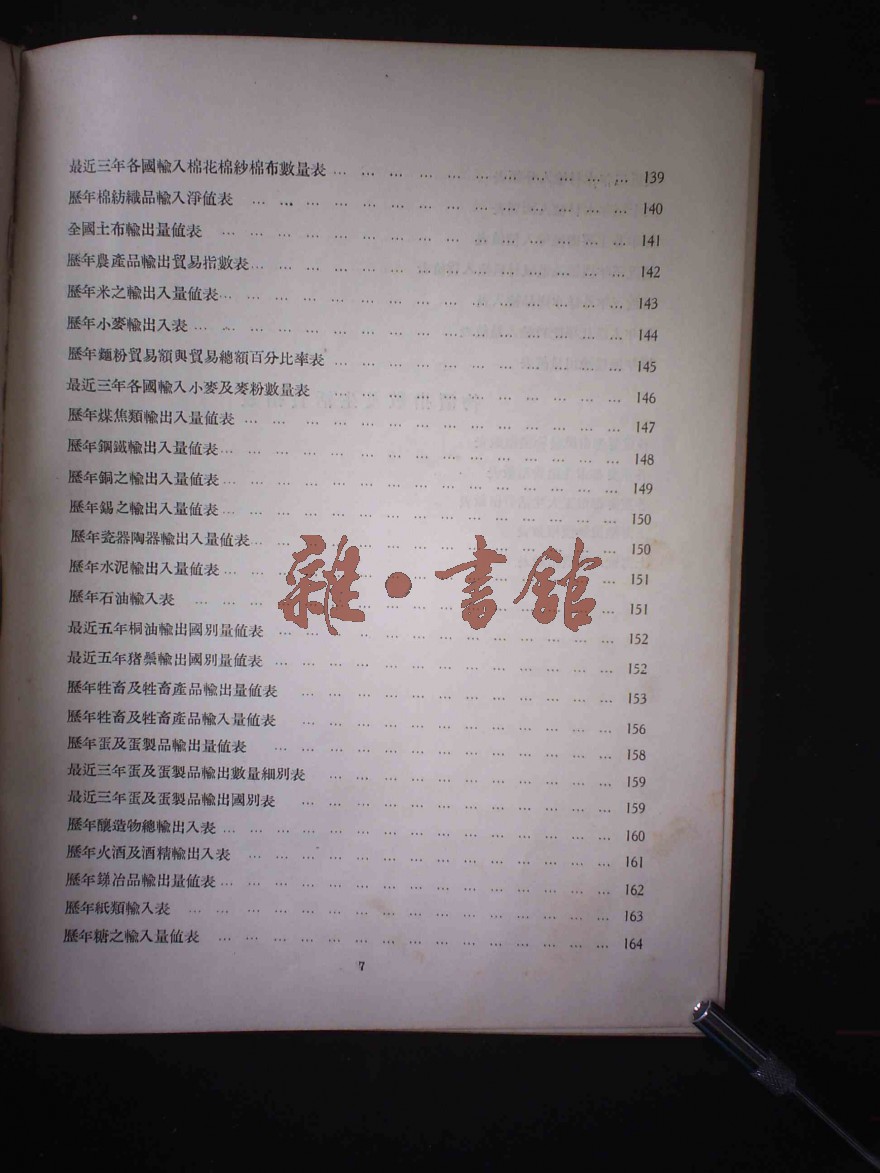 最近三年各國輸入棉花棉紗棉布數量表 … … … … … … … … … … … 139
歷年棉紡織品輸入淨值表 … … … … … … … … … … … … … … 140
全國土布輸出量值表 … … … … … … … … … … … … … … … 141
歷年農產品輸出貿易指數表… … … … … … … … … … … … … … 142
歷年米之輸出入量值表… … … … … … … … … … … … … … … 143
歷年小麥輸出入表 … … … … … … … … … … … … … … … … 144
歷年麵粉貿易額與貿易總額百分比率表 … … … … … … … … … … … 145
最近三年各國輸入小麥及麥粉數量表 … … … … … … … … … … … 146
歷年煤焦類輸出入量值表 … … … … … … … … … … … … … … 147
歷年鋼鐵輸出入量值表… … … … … … … … … … … … … … … 148
歷年銅之輸出入量值表… … … … … … … … … … … … … … … 149
歷年錫之輸出入量值表… … … … … … … … … … … … … … … 150
歷年瓷器陶器輸出入量值表… … … … … … … … … … … … … … 150
歷年水泥輸出入量值表… … … … … … … … … … … … … … … 151
歷年石油輸入表 … … … … … … … … … … … … … … … … 151
最近五年桐油輸出國別量值表 … … … … … … … … … … … … … 152
最近五年猪鬃輸出國別量值表 … … … … … … … … … … … … … 152
歷年牲畜及牲畜產品輸出量值表 … … … … … … … … … … … … 153
歷年牲畜及牲畜產品輸入量值表 … … … … … … … … … … … … 156
歷年蛋及蛋製品輸出量值表 … … … … … … … … … … … … … 158
最近三年蛋及蛋製品輸出數量細別表 … … … … … … … … … … … 159
最近三年蛋及蛋製品輸出國別表 … … … … … … … … … … … … 159
歷年釀造物總輸出入表… … … … … … … … … … … … … … … 160
歷年火酒及酒精輸出入表 … … … … … … … … … … … … … … 161
歷年銻冶品輸出量值表… … … … … … … … … … … … … … … 162
歷年紙類輸入表 … … … … … … … … … … … … … … … … 163
歷年糖之輸入量值表 … … … … … … … … … … … … … … … 164
7
雜·書館